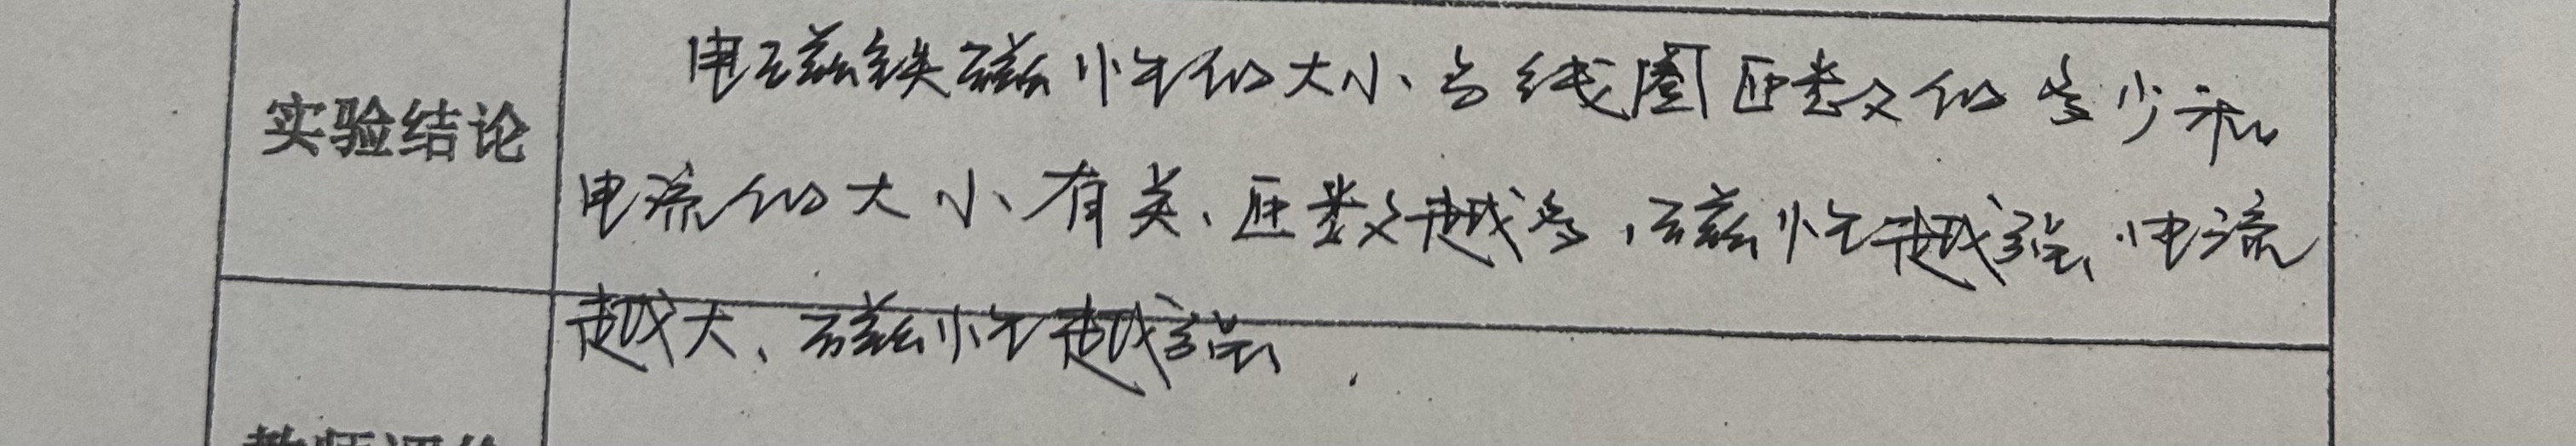 电磁铁磁性的大小、与线圈匝数的多少和
实验结论
电流的大小有关、匝数越多,磁性越强、电流
越大、磁性越强.
教师评价